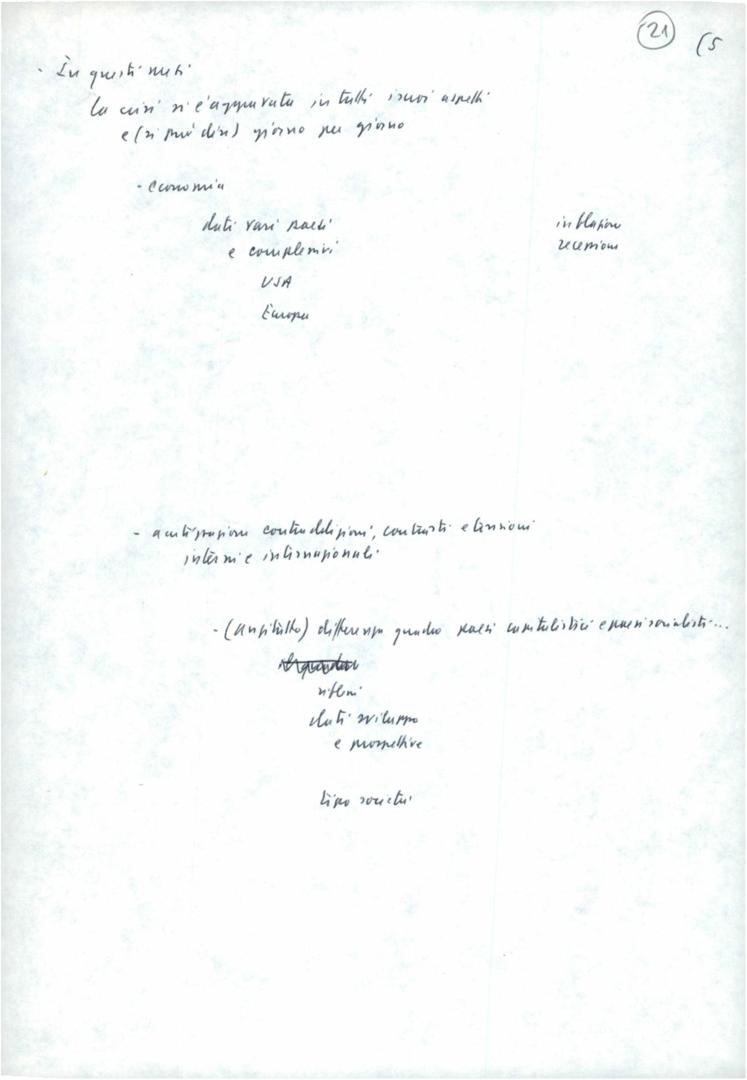 21
(5
- In questi mesi
la crisi si è aggravata in tutti i suoi aspetti
e (si può dire) giorno per giorno
- economia
dati vari paesi inflazione
e complessivi recessione
USA
Europa
- acutizzazione contraddizioni, contrasti e tensioni
interni e internazionali
- (anzitutto) differenza quadro paesi capitalistici e paesi socialisti...
ritmi
dati sviluppo
e prospettive
tipo società